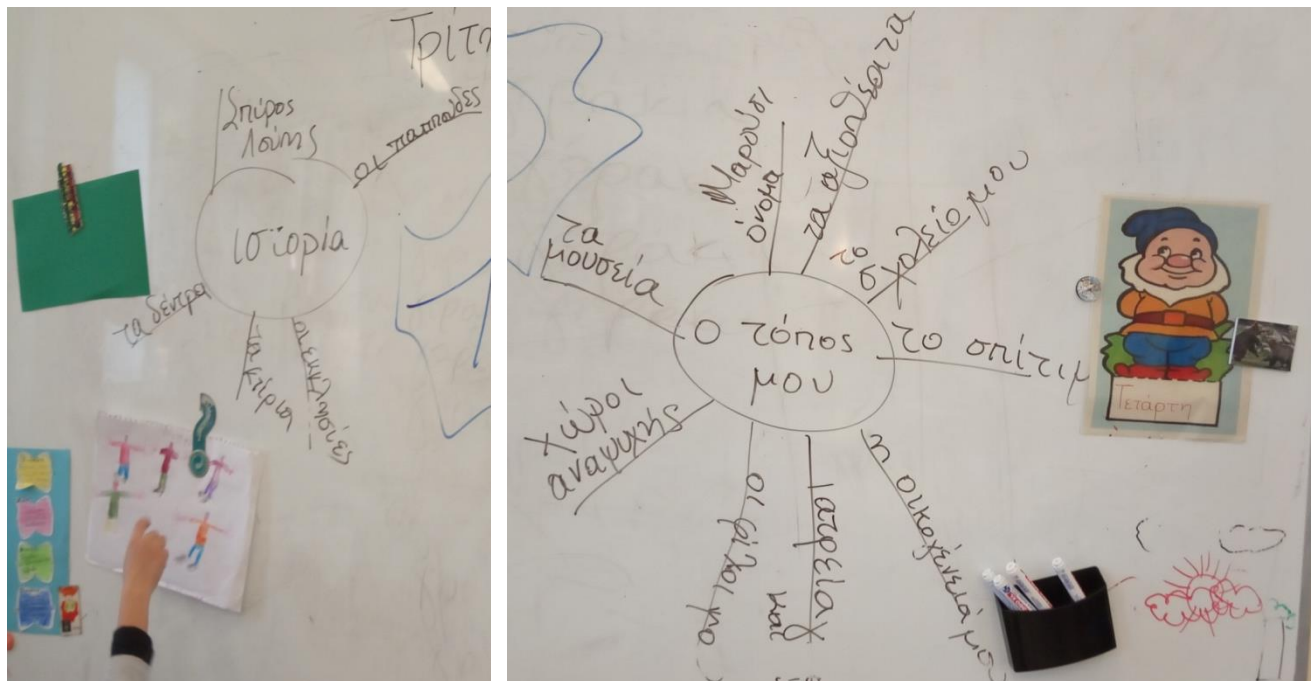 Τρίτη
Σπύρος
Λούης
οι παππούδες
ιστορία
τα δέντρα
τα κτίρια
οι εκκλησίες
Μαρούσι
όνομα
τα αξιοθέατα
το
σχολείο μου
τα
μουσεία
Ο τόπος
μου
το σπίτι μ
Χώροι
αναψυχής
οι φίλοι μο
Ιατρεία
και
η οικογένειά μου
Τετάρτη